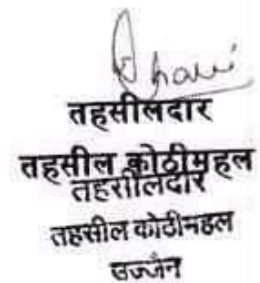 तहसीलदार
तहसील कोठीमहल
तहसीलदार
तहसील कोठीमहल
उज्जैन